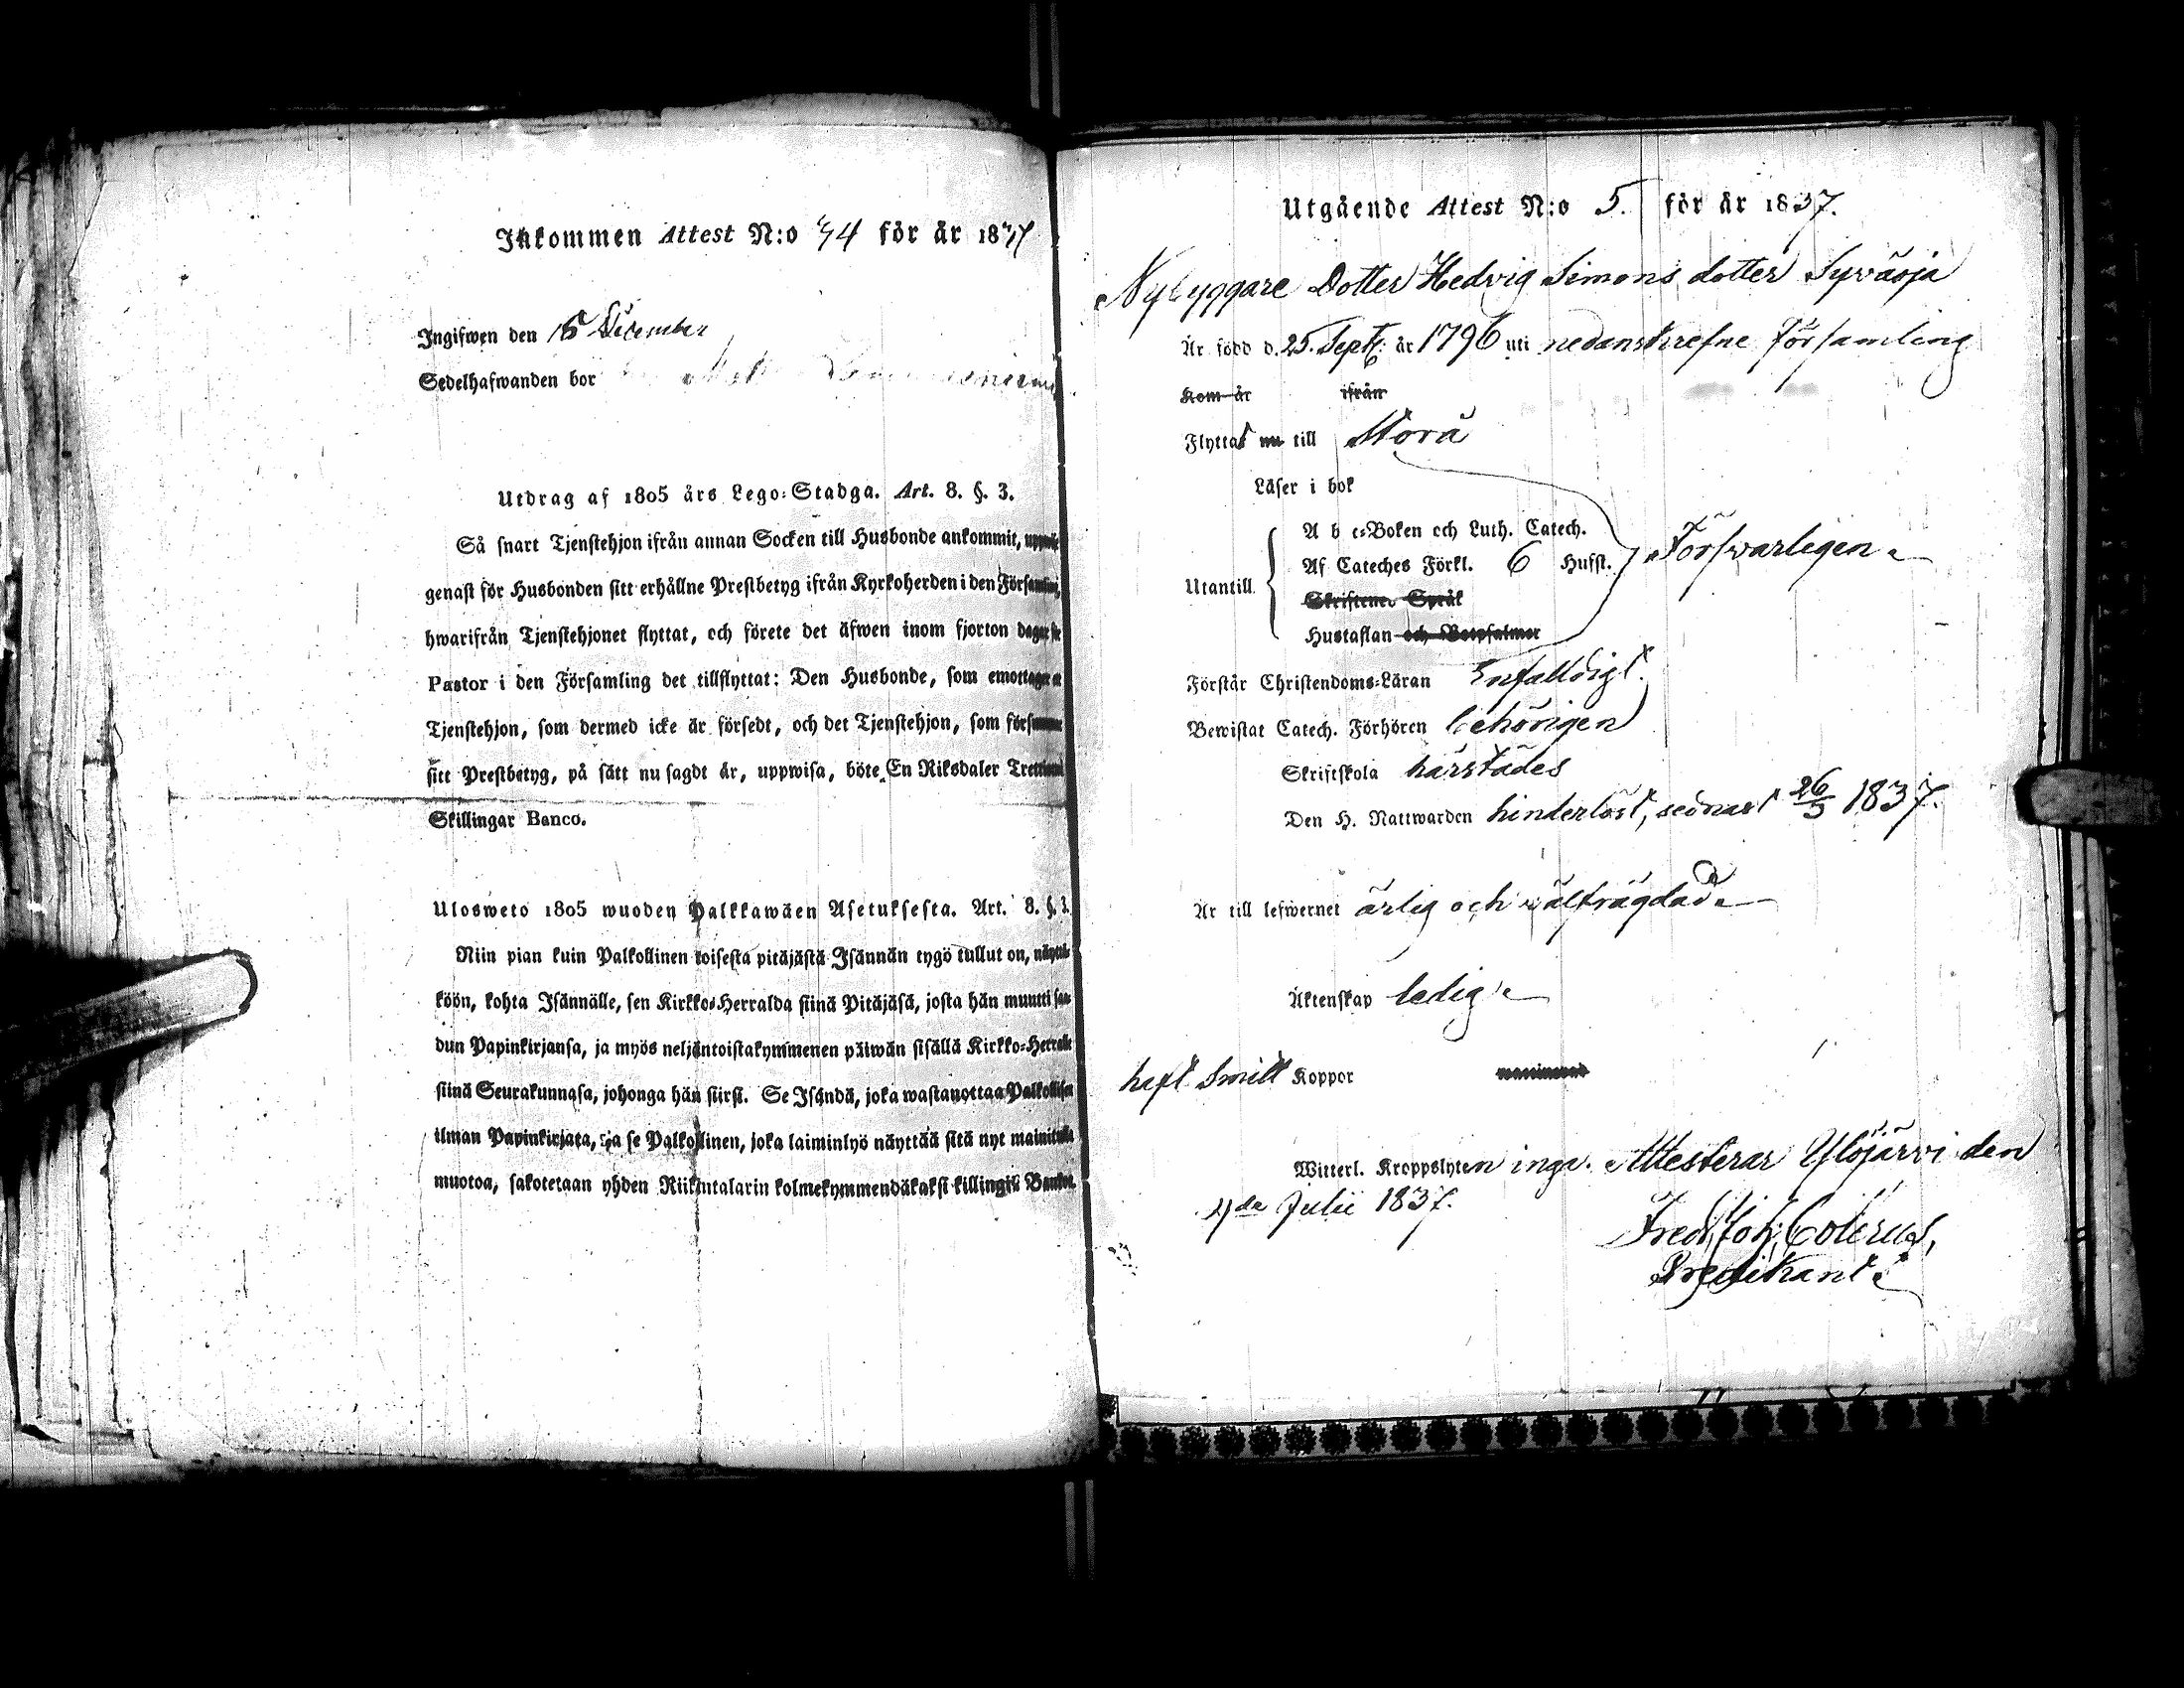 Inkommen Attest N:o 44 för år 1837
Ingifwen den 15 December
Sedelhafwanden bor
Utdrag af 1805 års Lego-Stadga. Art. 8. §. 3.
Så snart Tjenstehjon ifrån annan Socken till Husbonde ankommit,
genast för Husbonden sitt erhållne Prestbetyg ifrån Kyrkoherden i den
hwarifrån Tjenstehjonet flyttat, och förete det äfwen inom fjorton dagar
Pastor i den Församling det tillflyttat: Den Husbonde, som emottager
Tjenstehjon, som dermed icke är försedt, och det Tjenstehjon, som
sitt Prestbetyg, på sätt nu sagdt är, uppwisa, böte En Riksdaler
Skillingar Banco.
Ulosweto 1805 wuoden Palkkawäen Asetuksesta. Art. 8. §. 3.
Niin pian kuin Palkollinen toisesta pitäjästä Isännän tygö tullut on, näyttä-
köön, kohta Isännälle, sen Kirkko-Herralda siinä Pitäjäsä, josta hän muutti saa-
dun Papinkirjansa, ja myös neljäntoistakymmenen päiwän sisällä Kirkko-Herralle
siinä Seurakunnasa, johonga hän siirsi. Se Isändä, joka wastanottaa Palkollisen
ilman Papinkirjata, ja se Palkollinen, joka laiminlyö näyttää sitä nyt mainitulla
muotoa, sakotetaan yhden Riikintalarin kolmekymmendäkaksi killingiä Bankoa.
Utgående Attest N:o 5. för år 1837.
Nybyggare Dotter Hedvig Simons dotter Syväoja
Är född d. 25. Sept. år 1796 uti nedanskrefne församling
Kom år ifrån
Flyttat nu till Storå
Läser i bok
A b c-Boken och Luth. Catech.
Utantill Af Cateches Förkl. 6 Hufst. Försvarligen
Skriftenes Språk
Hustaflan och Botpsalmer
Förstår Christendoms-Läran Enfalldigt.
Bewistat Catech. Förhören behörigen
Skriftskola härstädes
Den H. Nattwarden hinderlöst, sednast 26/3 1837.
Är till lefwernet ärlig och wälfrägdad
Äktenskap ledig
haft Smitt Koppor vaccinerad
Witterl. Kroppslyten inga. Attesterar Ylöjärvi den
4de Julii 1837.
Fred. Joh. Colerus,
Predikant